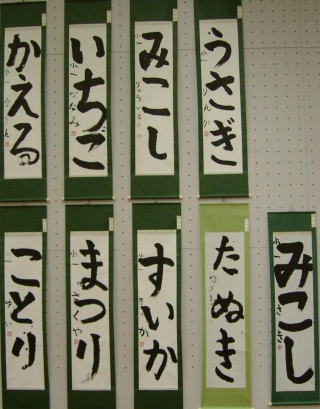 かえる
いちご
みこし
うさぎ
ことり
まつり
すいか
たぬき
みこし